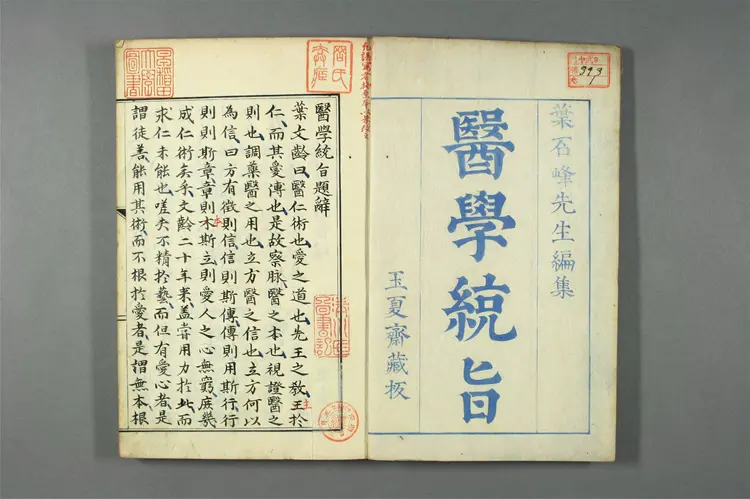 葉石峰先生編集
醫學統旨
玉夏齋藏板
393
醫學統旨題辭
葉文齡曰醫仁術也愛之道也先王之教王於
仁而其愛溥也是故察脉醫之本也視證醫之
則也調藥醫之用也立方醫之信也立方何以
為信曰方有徵則信信則斯傳傳則用斯行行
則則斯章章則木斯立則愛人之心無窮庶幾
成仁術矣乎文齡二十年來盖嘗用力於此而
求仁未能也嗟夫不精於藝而但有愛心者是
謂徒善能用其術而不根於愛者是謂無本根
主
本